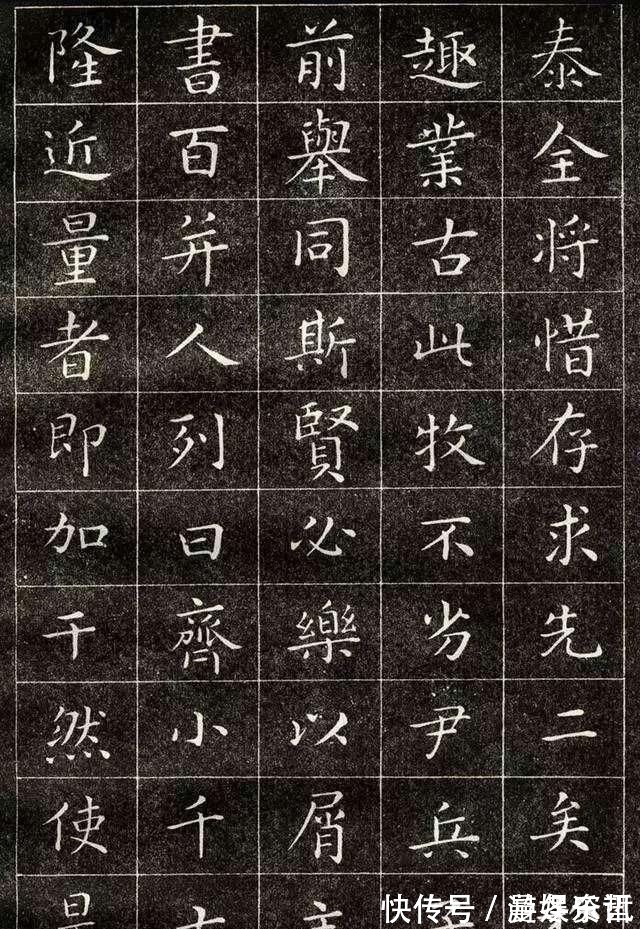 泰全将惜存求先二矣
趣業古此牧不劣尹兵
前舉同斯賢必樂以屑
書百并人列曰齊小千
隆近量者即加干然使
快传号／